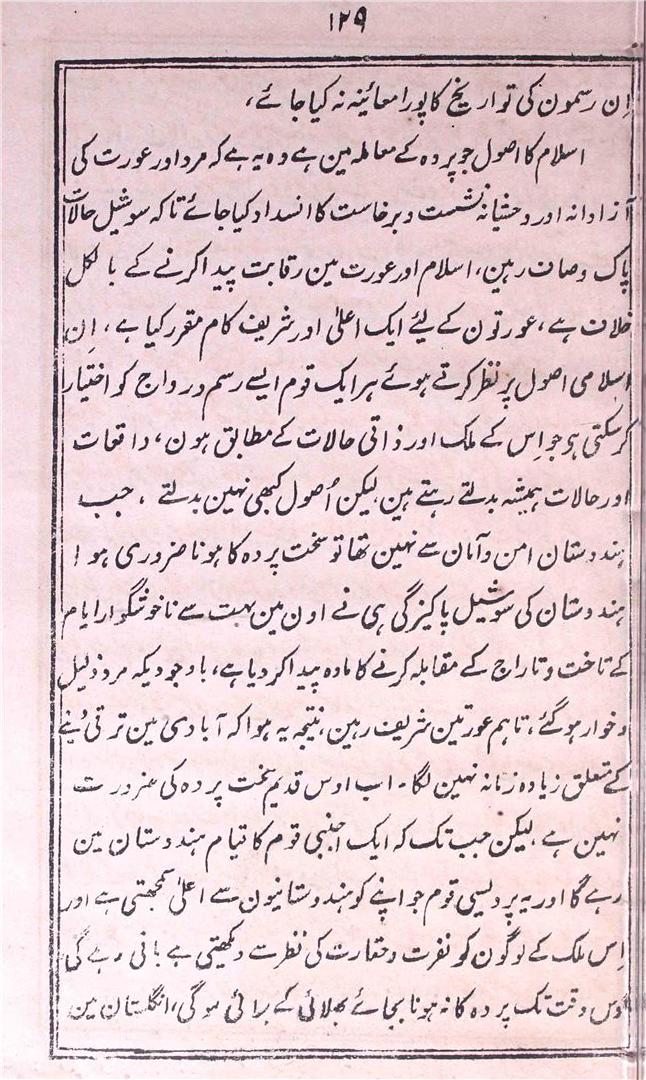 ۱۲۹
اِن رسمون کی تواریخ کا پورا معائینہ نہ کیا جائے،
اسلام کا اصول جو پردہ کے معاملہ مین ہے وہ یہ ہے کہ مرد اور عورت کی
آزادانہ اور وحشیانہ نشست و برخاست کا انسداد کیا جائے تاکہ سوشیل حالات
پاک و صاف رہین، اسلام اور عورت مین رقابت پیدا کرنے کے بالکل
خلاف ہے، عورتون کے لیئے ایک اعلیٰ اور شریف کام مقرر کیا ہے، اِن
اسلامی اصول پر نظر کرتے ہوئے ہر ایک قوم ایسے رسم و رواج کو اختیار
کر سکتی ہو جو اِس کے ملک اور ذاتی حالات کے مطابق ہون، واقعات
اور حالات ہمیشہ بدلتے رہتے ہین لیکن اُصول کبھی نہین بدلتے، جب
ہندوستان امن و آمان سے نہین تھا تو سخت پردہ کا ہونا ضروری ہو!
ہندوستان کی سوشیل پاکیزگی ہی نے اون مین بہت سے ناخوشگوار ایام
کے تاخت و تاراج کے مقابلہ کرنے کا مادہ پیدا کر دیا ہے، باوجودیکہ مرد ذلیل
و خوار ہو گئے، تاہم عورتین شریف رہین، نتیجہ یہ ہوا کہ آبادی مین ترقی ہونے
کے متعلق زیادہ زمانہ نہین لگا۔ اب اوس قدیم سخت پردہ کی ضرورت
نہین ہے لیکن جب تک کہ ایک اجنبی قوم کا قیام ہندوستان مین
رہے گا اور یہ پردیسی قوم جو اپنے کو ہندوستانیون سے اعلیٰ سمجھتی ہے اور
اِس ملک کے لوگون کو نفرت و حقارت کی نظر سے دیکھتی ہے باقی رہے گی
اوس وقت تک پردہ کا نہ ہونا بجائے بھلائی کے برائی ہوگی، انگلستان مین